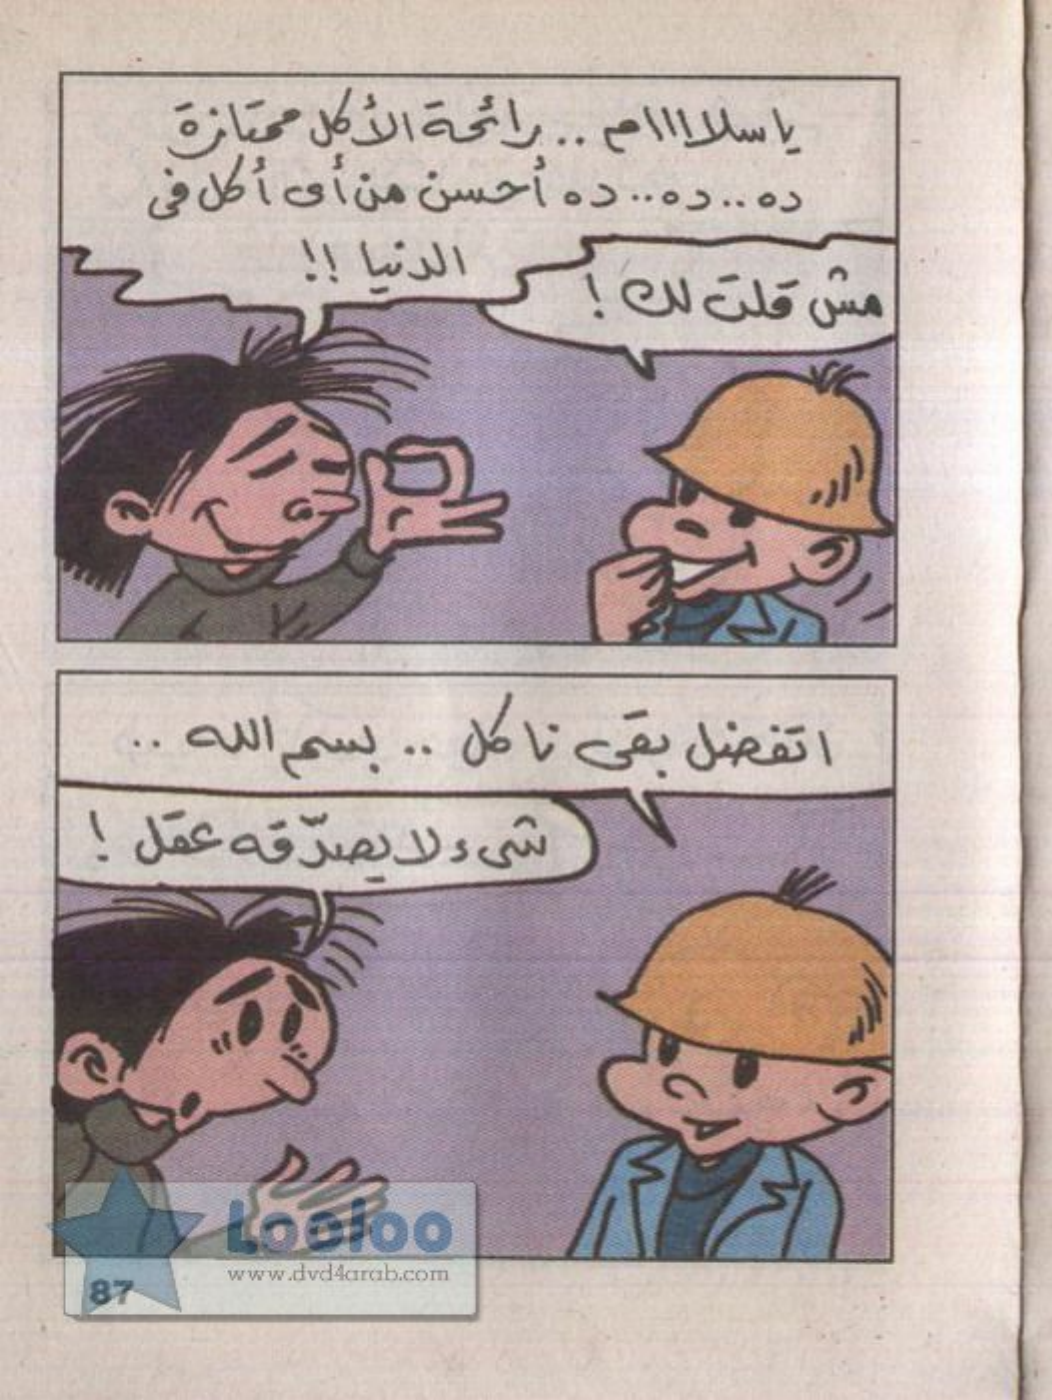 ياسلاااام .. رائحة الأكل ممتازة
ده .. ده .. ده أحسن من أى أكل فى
الدنيا !!
مش قلت لك !
اتفضل بقى ناكل .. بسم الله ..
شىء لا يصدّقه عقل !
Looloo
www.dvd4arab.com
87